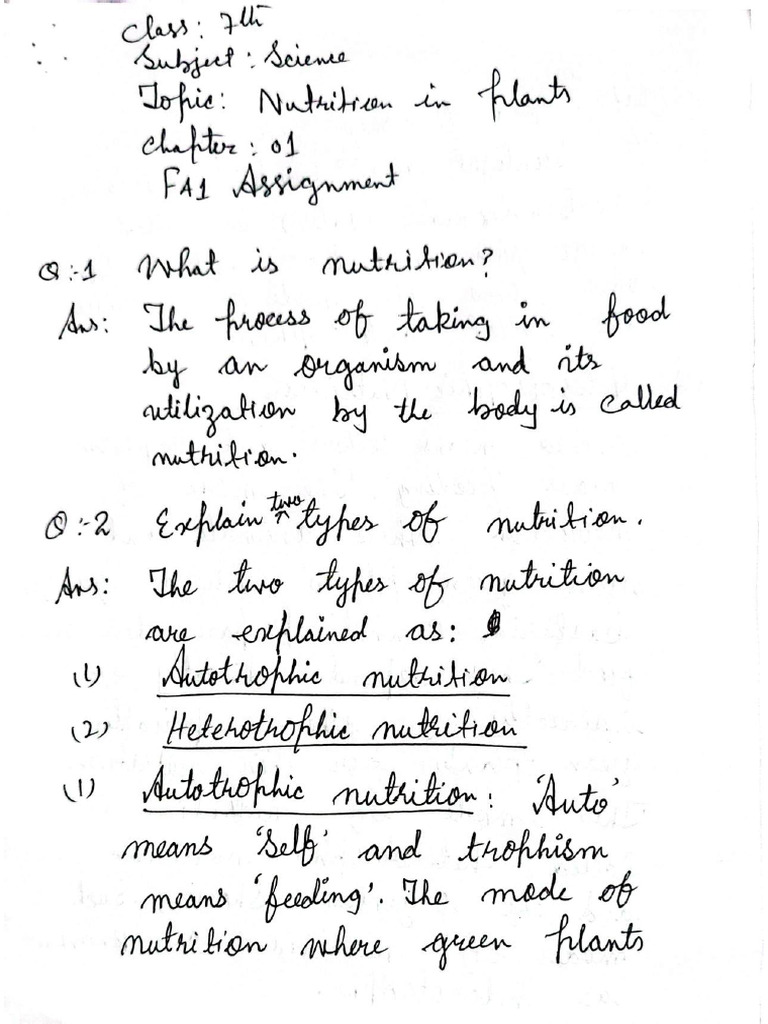 Class: 7th
Subject: Science
Topic: Nutrition in plants
Chapter: 01
FA1 Assignment
Q:-1 What is nutrition?
Ans: The process of taking in food
by an organism and its
utilization by the body is called
nutrition.
Q:-2 Explain two types of nutrition.
Ans: The two types of nutrition
are explained as:
(1) Autotrophic nutrition
(2) Heterotrophic nutrition
(1) Autotrophic nutrition: 'Auto'
means 'Self' and trophism
means 'feeding'. The mode of
nutrition where green plants